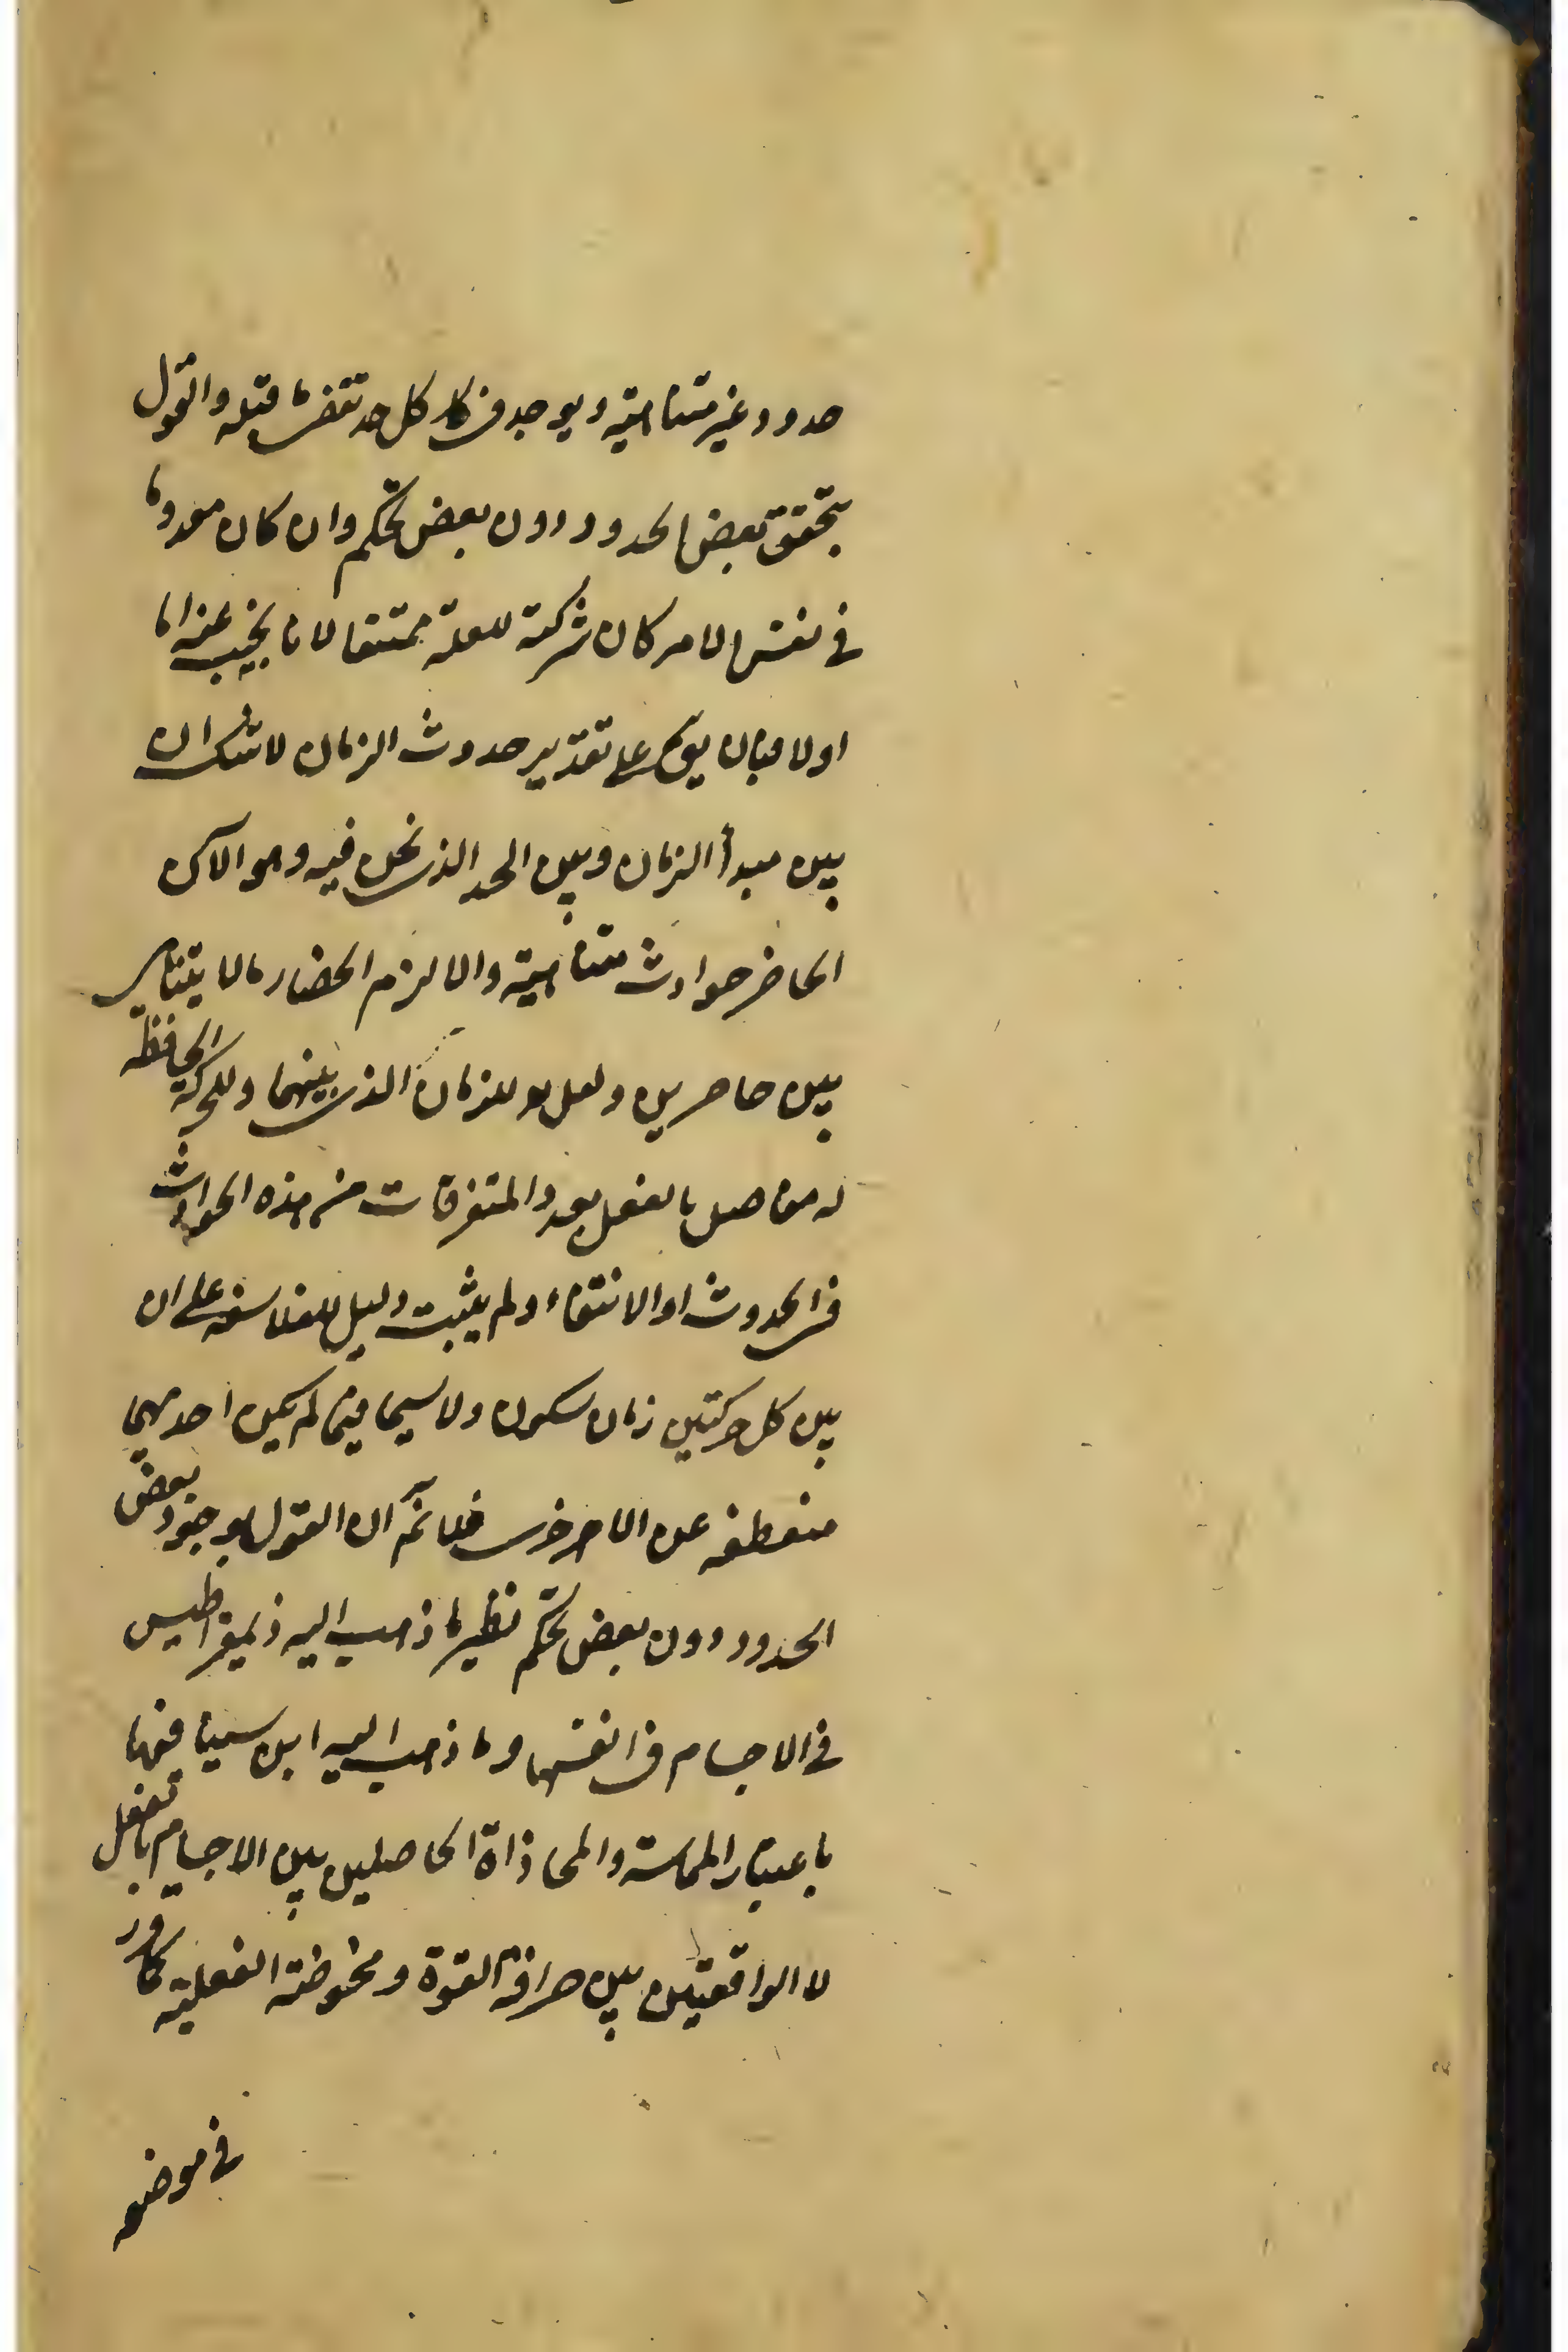 حدود غير متناهية ويوجد في كل حد تقضي ما قبله والقول
بتحقق بعض الحدود دون بعض تحكم وان كان معدوما
في نفس الامر كان شركته للعلة ممتنعا لانا نجيب عنه اما
اولا فبان يق على تقدير حدوث الزمان لا شك ان
بين مبدأ الزمان وبين الحد الذي نحن فيه وهو الآن
الحاضر حوادث متناهية والا لزم انحصار ما لا يتناهى
بين حاصرين ولعل للزمان الذي بينهما وللحركة الحافظة
له مفاصل بالفعل بعدد المتفرقات من هذه الحوادث
في الحدوث او الانتفاء ولم يثبت دليل للفلاسفه على ان
بين كل حركتين زمان سكون ولا سيما فيما لم يكن احديهما
منعطفه عن الاخرى فلا نم ان القول بوجود بعض
الحدود دون بعض تحكم نظير ما ذهب اليه ذيمقراطيس
في الاجسام في انفسها وما ذهب اليه ابن سينا فيها
باعتبار المماسة والمحاذاة الحاصلين بين الاجسام بالفعل
لا الواقعتين بين صرافة القوة ومحوضة الفعلية كما
في موضعه